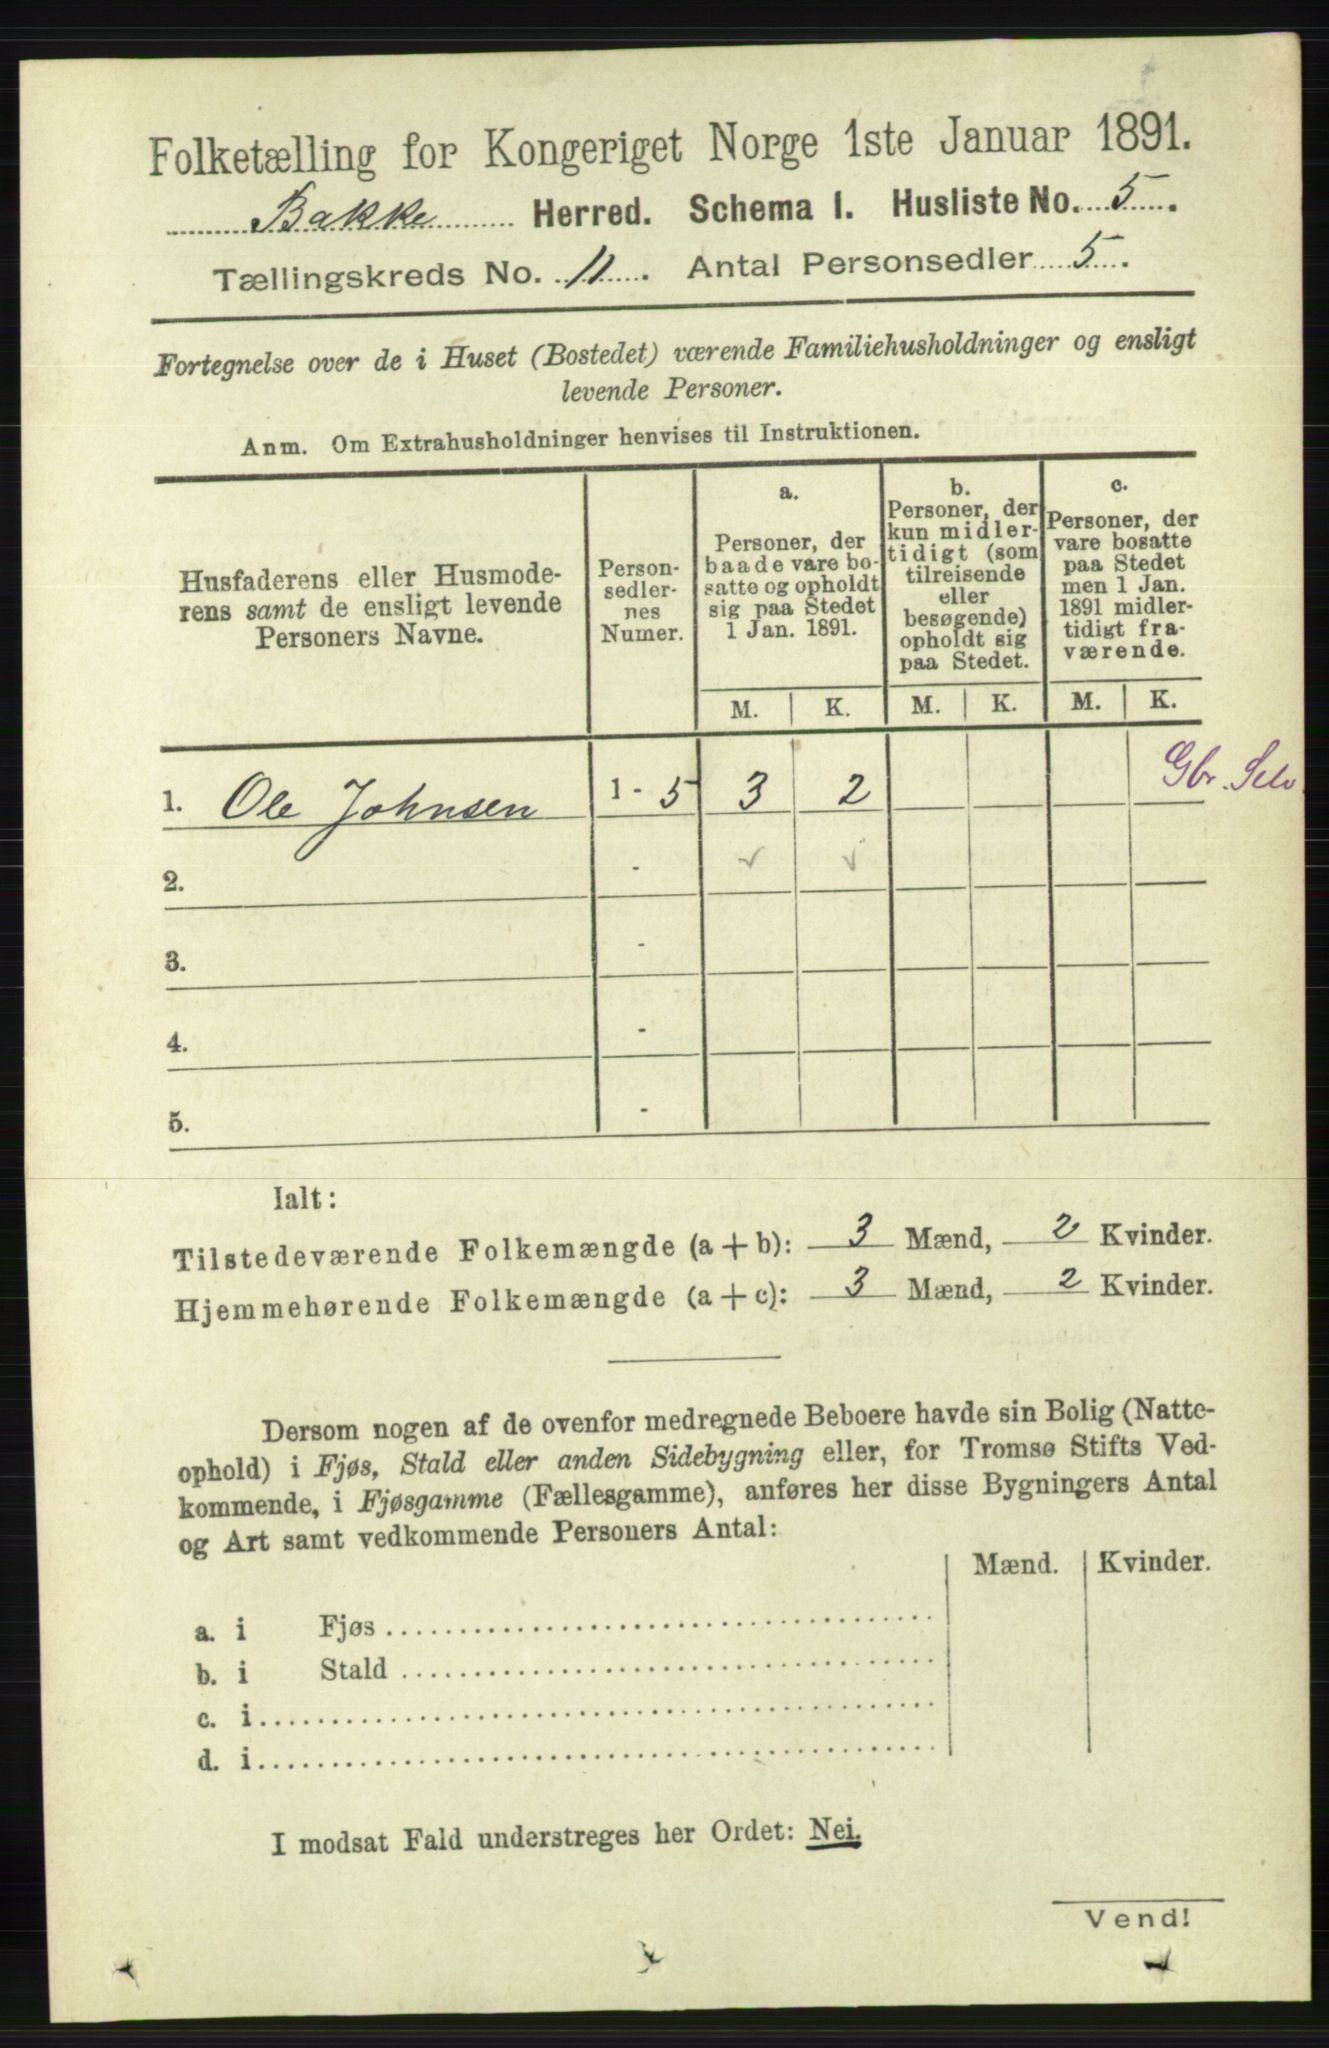 Folketælling for Kongeriget Norge 1ste Januar 1891.
Bakke Herred. Schema I. Husliste No. 5.
Tællingskreds No. 11. Antal Personsedler 5.
Fortegnelse over de i Huset (Bostedet) værende Familiehusholdninger og ensligt
levende Personer.
Anm. Om Extrahusholdninger henvises til Instruktionen.
Husfaderens eller Husmode-
rens samt de ensligt levende
Personers Navne.
Person-
sedler-
nes
Numer.
a.
Personer, der
baade vare bo-
satte og opholdt
sig paa Stedet
1 Jan. 1891.
b.
Personer, der
kun midler-
tidigt (som
tilreisende
eller
besøgende)
opholdt sig
paa Stedet.
c.
Personer, der
vare bosatte
paa Stedet
men 1 Jan.
1891 midler-
tidigt fra-
værende.
M. K. M. K. M. K.
1. Ole Johnsen 1 - 5 3 2 Gbr. Selv
2. -
3. -
4. -
5. -
Ialt:
Tilstedeværende Folkemængde (a + b): 3 Mænd, 2 Kvinder.
Hjemmehørende Folkemængde (a + c): 3 Mænd, 2 Kvinder.
Dersom nogen af de ovenfor medregnede Beboere havde sin Bolig (Natte-
ophold) i Fjøs, Stald eller anden Sidebygning eller, for Tromsø Stifts Ved-
kommende, i Fjøsgamme (Fællesgamme), anføres her disse Bygningers Antal
og Art samt vedkommende Personers Antal:
Mænd. Kvinder.
a. i Fjøs
b. i Stald
c. i
d. i
I modsat Fald understreges her Ordet: Nei.
Vend!